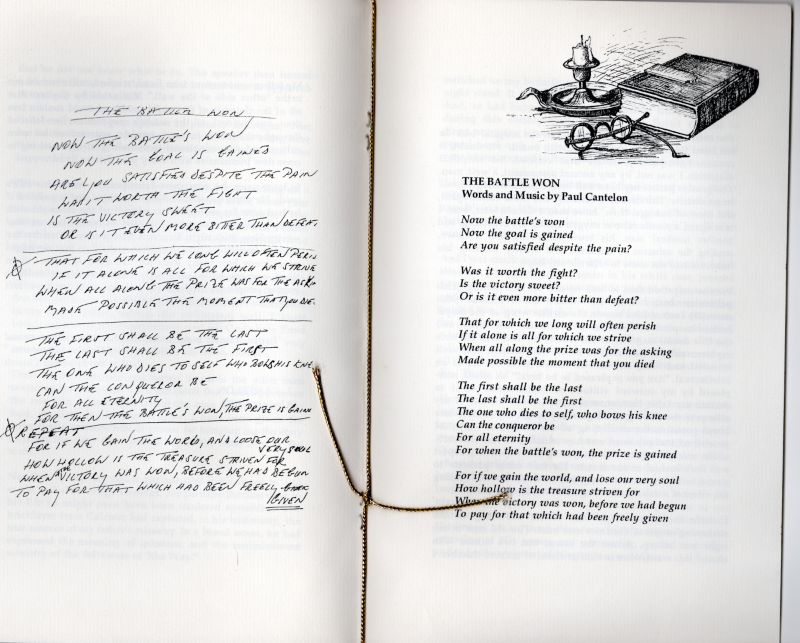 THE BATTLE WON
NOW THE BATTLE'S WON
NOW THE GOAL IS GAINED
ARE YOU SATISFIED DESPITE THE PAIN
WAS IT WORTH THE FIGHT
IS THE VICTORY SWEET
OR IS IT EVEN MORE BITTER THAN DEFEAT
THAT FOR WHICH WE LONG WILL OFTEN PERIS
IF IT ALONE IS ALL FOR WHICH WE STRIVE
WHEN ALL ALONG THE PRIZE WAS FOR THE ASK
MADE POSSIBLE THE MOMENT THAT YOU DIE
THE FIRST SHALL BE THE LAST
THE LAST SHALL BE THE FIRST
THE ONE WHO DIES TO SELF WHO BOWS HIS KNE
CAN THE CONQUEROR BE
FOR ALL ETERNITY
FOR THEN THE BATTLE'S WON, THE PRIZE IS GAIN
REPEAT
FOR IF WE GAIN THE WORLD, AND LOOSE OUR
VERY SOUL
HOW HOLLOW IS THE TREASURE STRIVEN FOR
WHEN THE VICTORY WAS WON, BEFORE WE HAD BEGUN
TO PAY FOR THAT WHICH HAD BEEN FREELY
GIVEN
THE BATTLE WON
Words and Music by Paul Cantelon
Now the battle's won
Now the goal is gained
Are you satisfied despite the pain?
Was it worth the fight?
Is the victory sweet?
Or is it even more bitter than defeat?
That for which we long will often perish
If it alone is all for which we strive
When all along the prize was for the asking
Made possible the moment that you died
The first shall be the last
The last shall be the first
The one who dies to self, who bows his knee
Can the conqueror be
For all eternity
For when the battle's won, the prize is gained
For if we gain the world, and lose our very soul
How hollow is the treasure striven for
When the victory was won, before we had begun
To pay for that which had been freely given